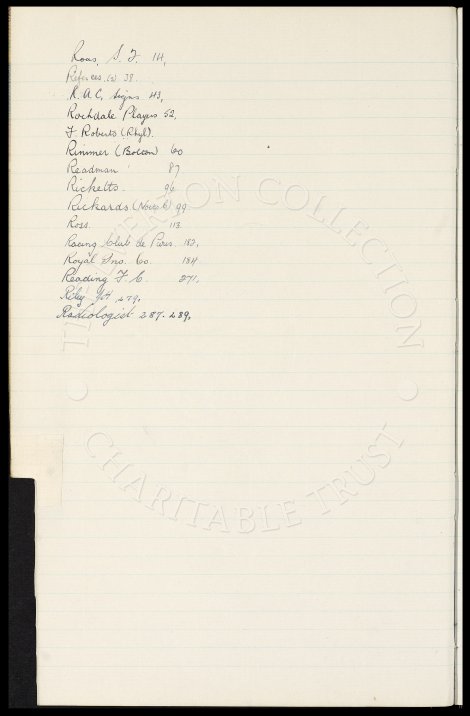 Rous, S. F. 14,
Referees (a) 38
R. A. C. Signs 43,
Rochdale Players 52,
F Roberts (Rhyl).
Rimmer (Bolton) 60
Readman 87
Ricketts. 96
Rickards 99
Ross. 113.
Racing Club de Paris. 183,
Royal Ins. Co. 184
Reading F. C. 271,
Riley 279,
Radiologist 287. 289,
THE HENSON COLLECTION
CHARITABLE TRUST